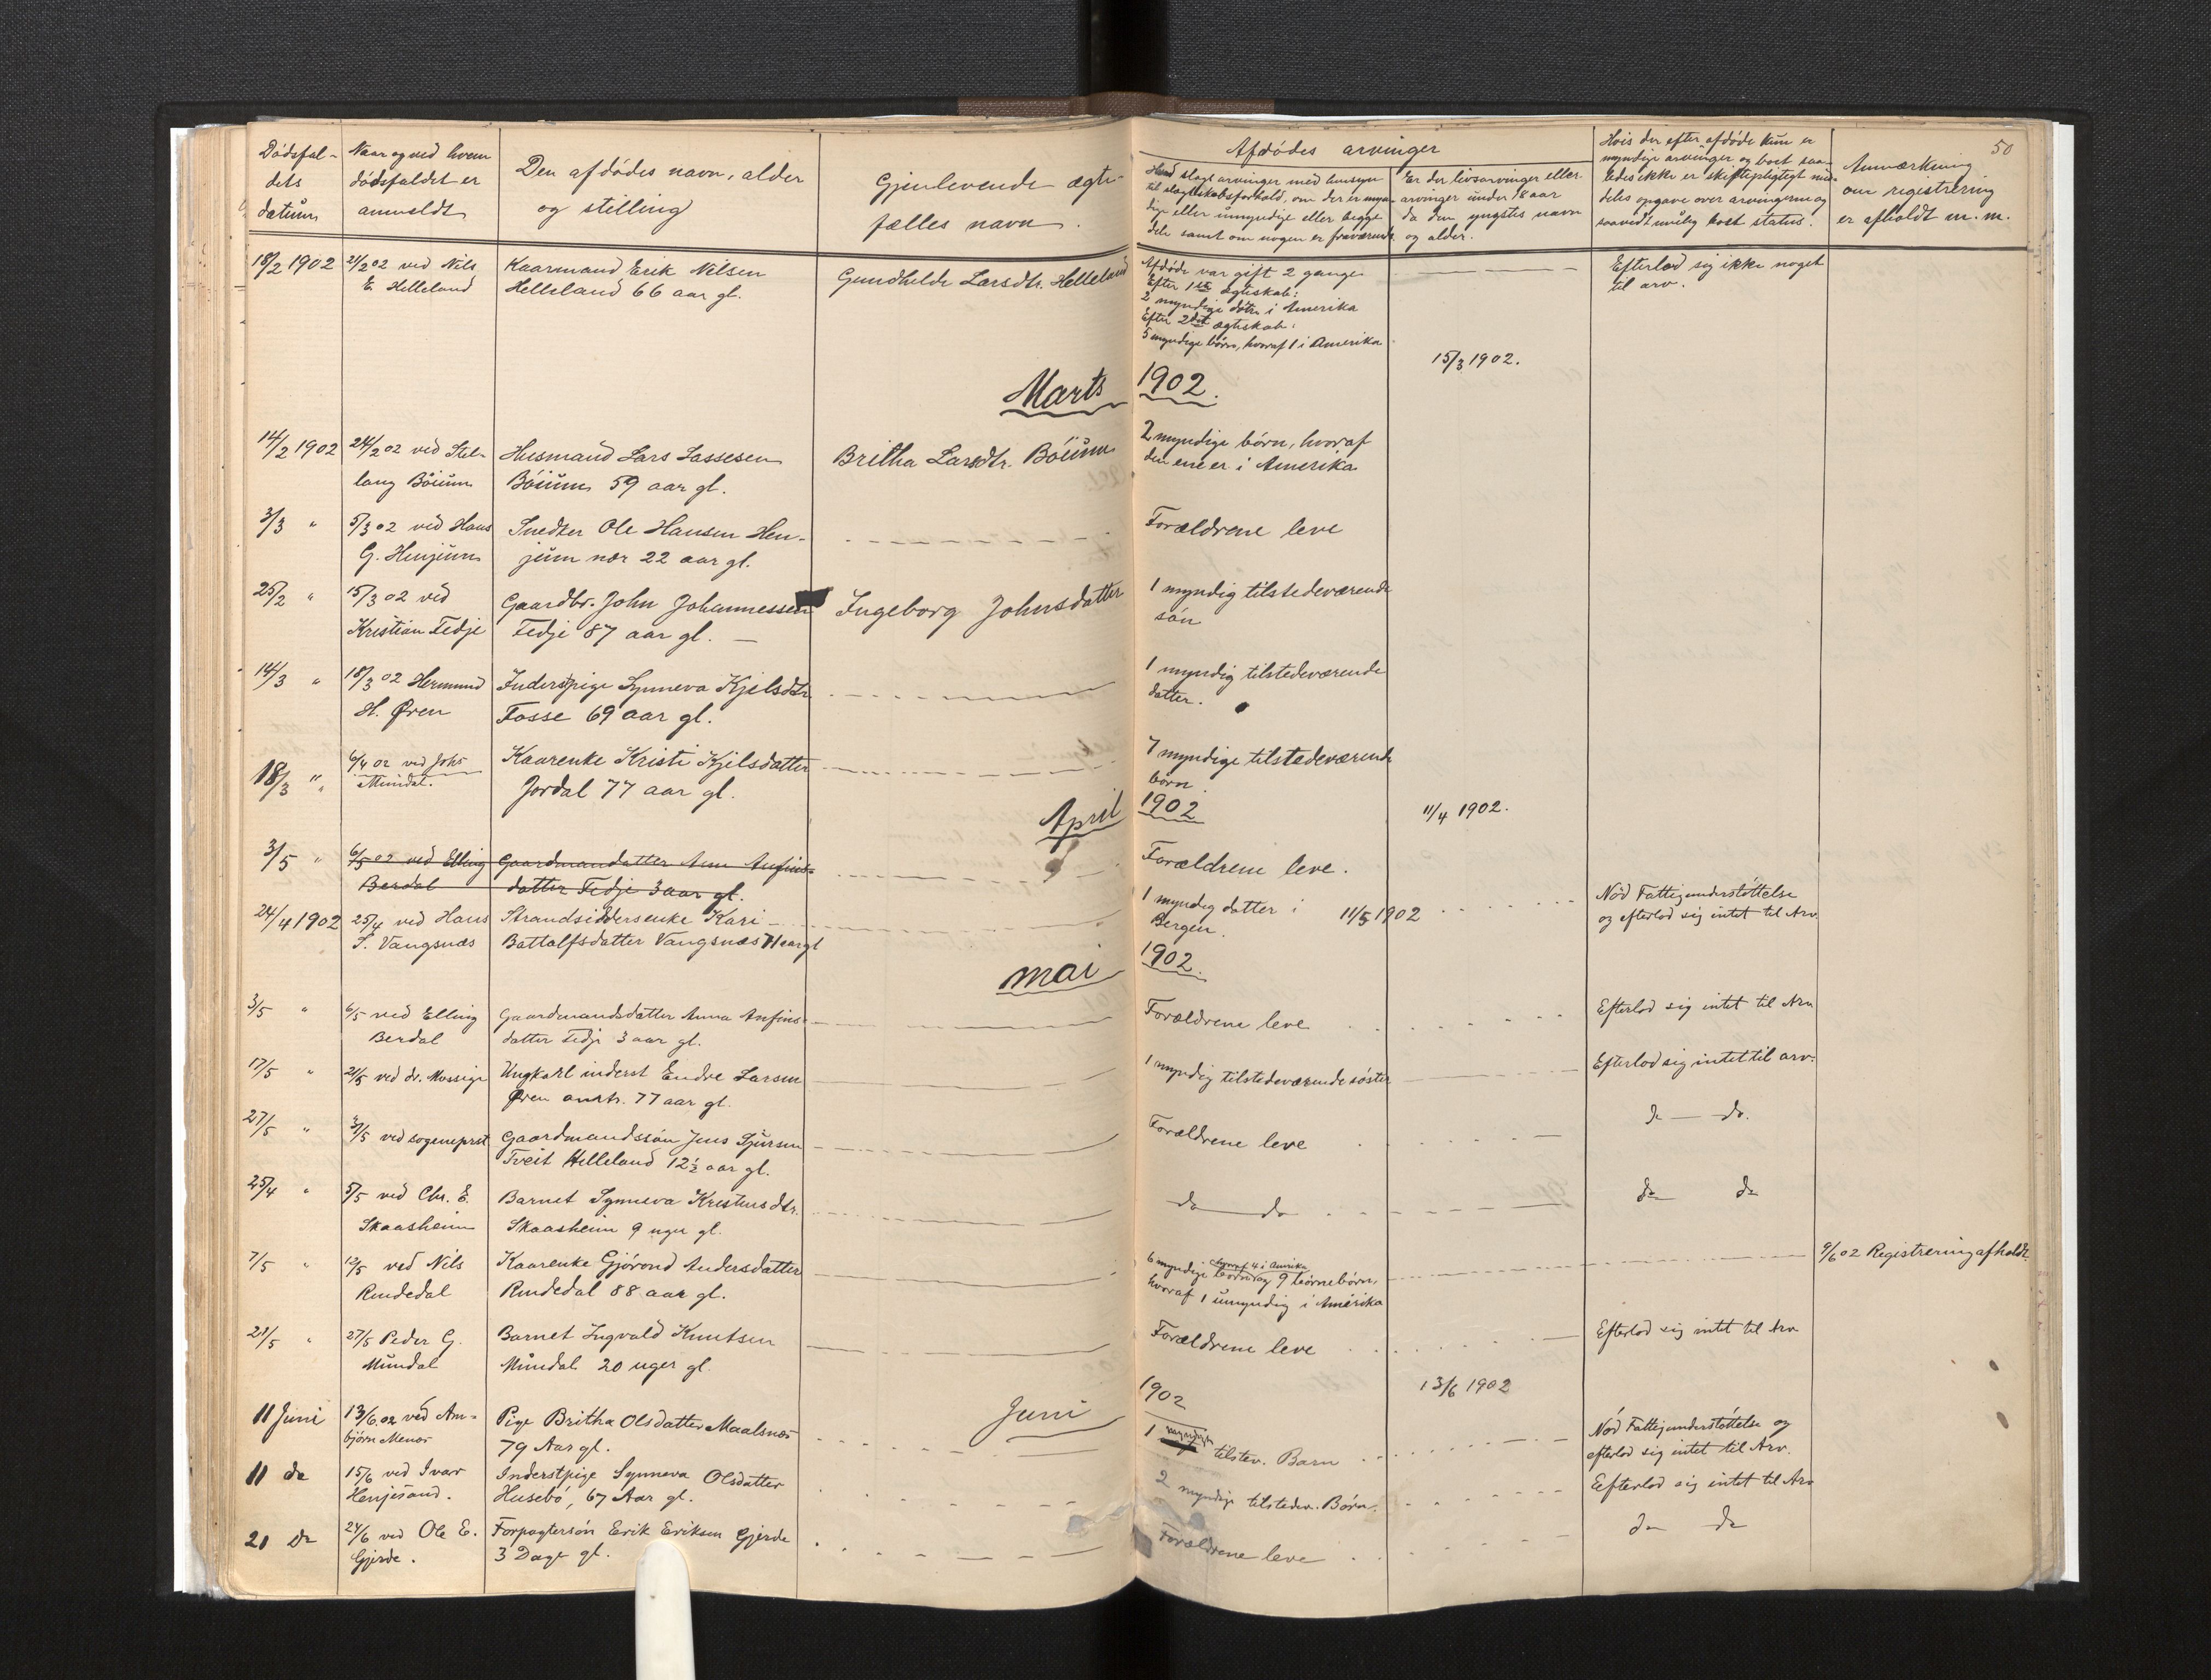 50
Dödsfal-
dets
datum
Naar og ved hvem
dödsfaldet er
anmeldt
Den afdödes navn, alder
og stilling
Gjenlevende ægte-
fælles navn.
Afdödes arvinger
Hvad slags arvinger med hensyn
til slægtskabsforhold, om der er myn-
dige eller umyndige eller begge
dele samt om nogen er fraværende
Er der livsarvinger eller
arvinger under 18 aar
da den yngstes navn
og alder.
Hvis der efter afdöde kun er
myndige arvinger og boet saa-
ledes ikke er skiftepligtigt med-
deles opgave over arvingerne og
saavidt mulig boets status.
Anmærkning
om registrering
er afholdt m. m.
18/2 1902
21/2 02 ved Nils
E. Helleland
Kaarmand Erik Nilsen
Helleland 66 aar gl.
Gundhilde Larsdtr. Helleland
Afdöde var gift 2 gange
Efter 1ste ægteskab:
2 myndige dötre i Amerika
Efter 2det ægteskab:
5 myndige börn, hvoraf 1 i Amerika
Efterlod sig ikke noget
til arv.
15/3 1902.
Marts 1902.
14/2 1902
24/2 02 ved Stel-
lang Böium
Husmand Lars Lassesen
Böium 59 aar gl.
Britha Larsdtr. Böium
2 myndige börn, hvoraf
den ene er i Amerika
3/3 "
5/3 02 ved Hans
G. Henjum
Snedker Ole Hansen Hen-
jum nær 22 aar gl.
Forældrene leve
25/2 "
15/3 02 ved
Kristian Tedje
Gaardbr. John Johannessen
Fedje 87 aar gl. —
Ingeborg Johnsdatter
1 myndig tilstedeværende
sön
14/3 "
18/3 02 Hermund
H. Øren
Inderstpige Synneva Kjelsdtr
Fosse 69 aar gl.
1 myndig tilstedeværende
datter.
18/3 "
6/4 02 ved Johs
Mundal.
Kaarenke Kristi Kjelsdatter
Jordal 77 aar gl.
7 myndige tilstedeværende
börn.
April 1902
11/4 1902.
3/5 "
6/5 02 ved Elling
Berdal
Gaardmandatter Ann Anfins-
datter Fedje 3 aar gl.
Forældrene leve.
24/4 1902
25/4 ved Hans
S. Vangsnæs
Strandsiddersenke Kari
Battalfsdatter Vangsnæs 71 aar gl
1 myndig datter i
Bergen.
11/5 1902
Nöd Fattigunderstöttelse
og efterlod sig intet til Arv
mai 1902.
3/5 "
6/5 ved Elling
Berdal
Gaardmandsdatter Anna Anfins-
datter Fedje 3 aar gl.
Forældrene leve
Efterlod sig intet til Arv
17/5 "
21/5 ved dr. Mossige
Ungkarl inderst Endre Larsen
Øren omtr. 77 aar gl.
1 myndig tilstedeværende söster
Efterlod sig intet til arv.
27/5 "
31/5 ved sogneprst
Gaardmandssön Jens Sjursen
Tveit Helleland 12½ aar gl.
Forældrene leve
do — do.
25/4 "
5/5 ved Chr. E.
Skaasheim
Barnet Synneva Kristensdtr.
Skaasheim 9 uger gl.
do do
do do
7/5 "
12/5 ved Nils
Rendedal
Kaarenke Gjörond Andersdatter
Rendedal 88 aar gl.
hvoraf 4 i Amerika
6 myndige börn og 9 börnebörn,
hvoraf 1 umyndig i Amerika
9/6 02 Registrering afholdt.
21/5 "
27/5 Peder G.
Mundal
Barnet Ingvald Knutsen
Mundal 20 uger gl.
Forældrene leve
Efterlod sig intet til Arv
Juni 1902
13/6 1902
11 Juni
13/6 02 ved Am-
björn Menæs
Pige Britha Olsdatter Maalsnæs
79 Aar gl.
1 myndigt tilstev. Barn
Nöd Fattigunderstöttelse og
efterlod sig intet til Arv.
11 do
15/6 ved Ivar
Henjesand.
Inderstpige Synneva Olsdatter
Husebö, 67 Aar gl.
2 myndige tilstedev. Börn.
Efterlod sig intet til Arv
21 Do
24/6 ved Ole E.
Gjerde.
Forpagtersön Erik Eriksen Gjerde
3 Dage gl.
Forældrene leve
do do